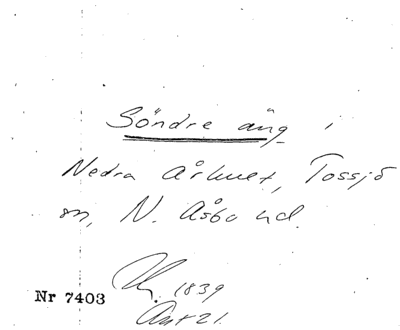 Söndre äng i
Nedra Århult, Tossjö
sn, N. Åsbo hd.
1839
Nr 7403
Akt 21.